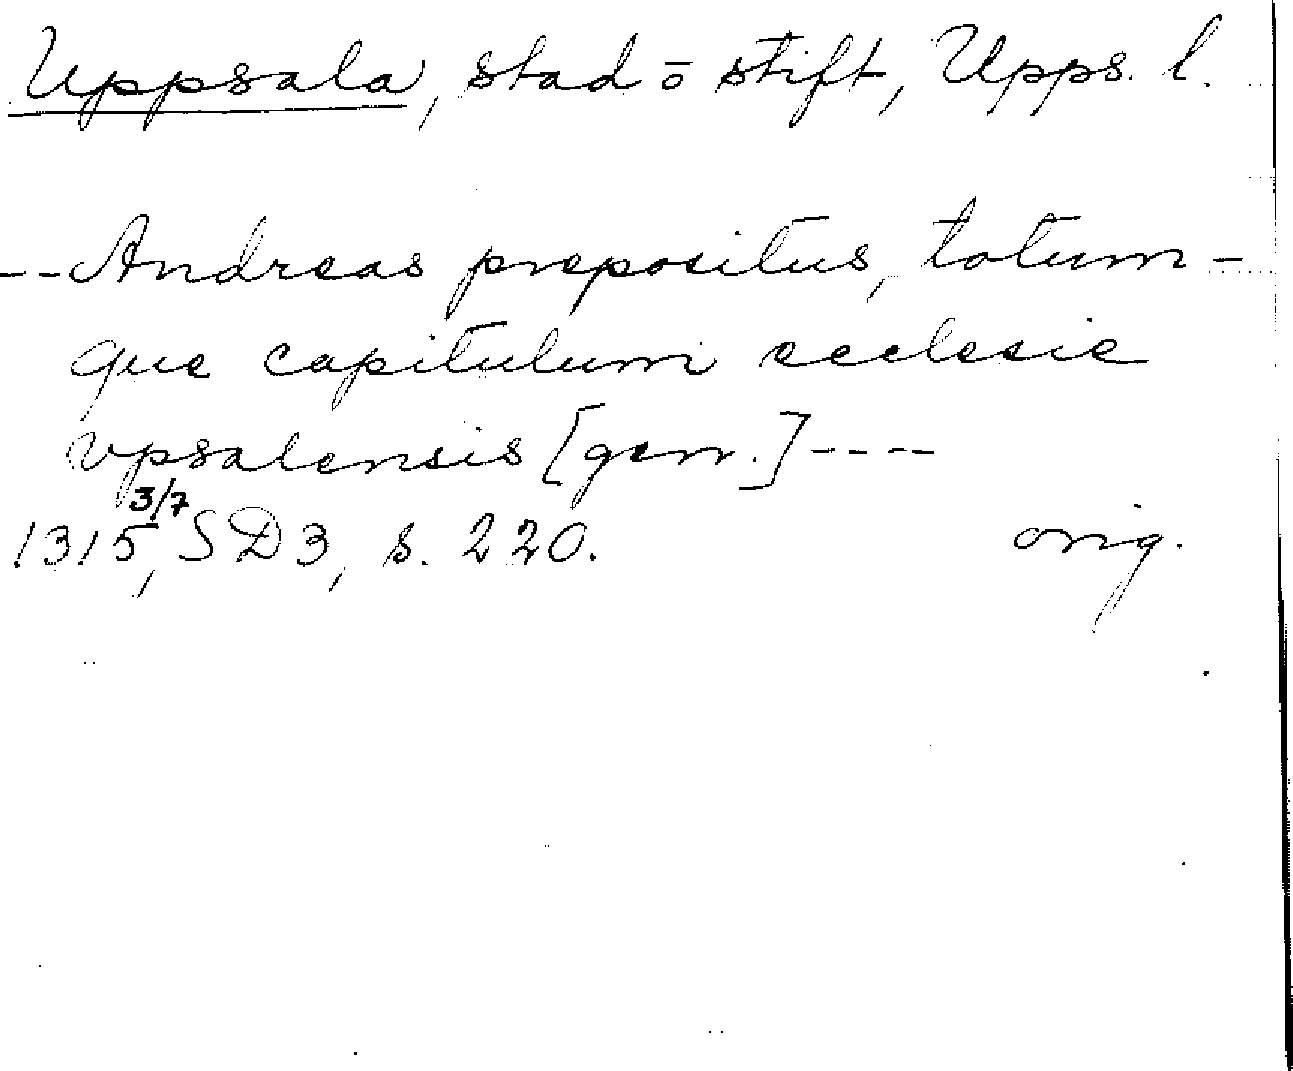 Uppsala, stad o stift, Upps. l.
-- Andreas prepositus, totum-
que capitulum ecclesie
vpsalensis [gen.] ----
1315 3/7, SD3, s. 220. orig.